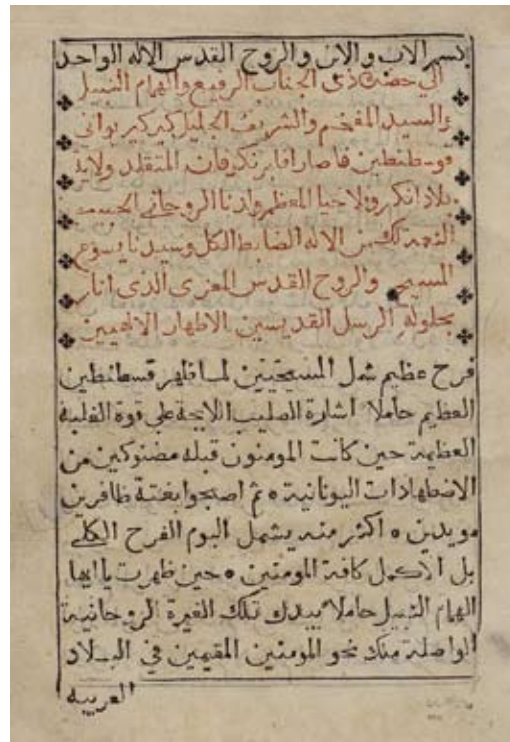 بسم الاب والابن والروح القدس الاله الواحد
الي حضرة ذى الجناب الرفيع والهمام النبيل
والسيد المفخم والشريف الجليل كير كير يواني
قوسطنطين فاصارافا برنكوفان المتقلد ولاية
بلاد انكروفلاخيا المعظم وابننا الروحاني الحبيب
النعمة لك من الاله الضابط الكل وسيدنا يسوع
المسيح والروح القدس المعزى الذى انار
بحلوله الرسل القديسين الاطهار الالهيين
فرح عظيم شمل المسيحيين لما ظهر قسطنطين
العظيم حاملا اشارة الصليب اللايحة على قوة الغلبة
العظيمة حين كانت المومنون قبله مضنوكين من
الاضطهادات اليونانية ثم اصبحوا بغتة ظافرين
مويدين اكثر منه يشمل اليوم الفرح الكلي
بل الاكمل كافة المومنين حين ظهرت يا ايها
الهمام النبيل حاملا بيدك تلك الغيرة الروحانية
الواصلة منك نحو المومنين المقيمين في البلاد
العربية